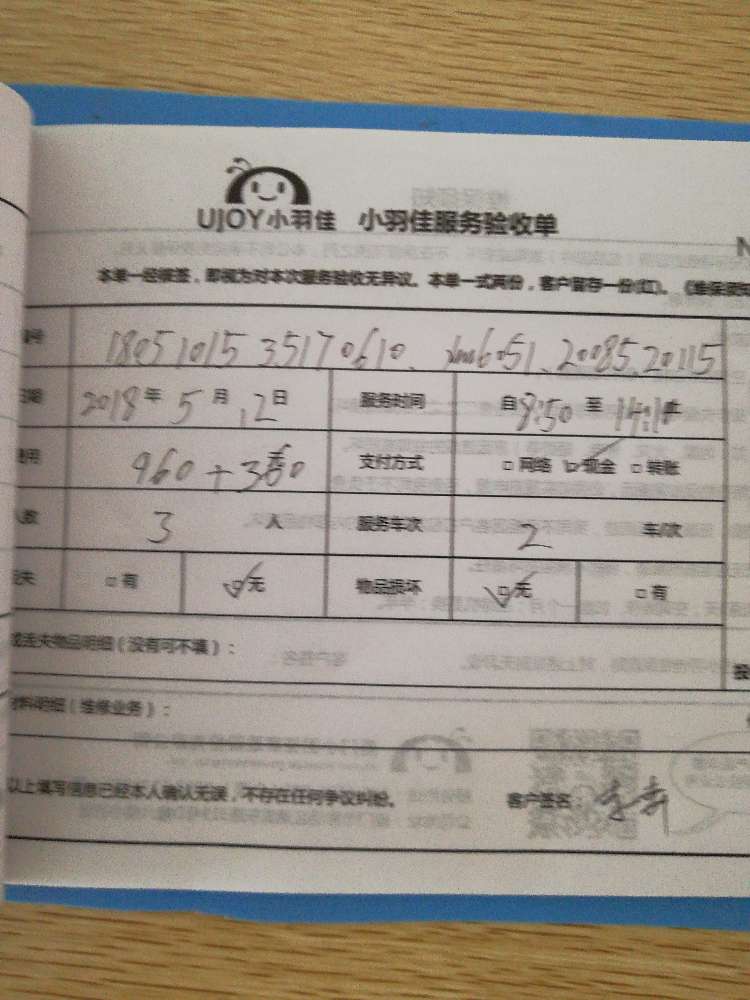 UJOY小羽佳 小羽佳服务验收单
本单一经接签，即视为对本次服务验收无异议。本单一式两份，客户留存一份(红)。
号 18051015 35170610、xm6051、20085、20115
期 2018年 5月12日 服务时间 自8:50 至 14:10
用 960+380 支付方式 □网络 ☑现金 □转账
人数 3 人 服务车次 2 车/次
失 □有 ☑无 物品损坏 ☑无 □有
丢失物品明细（没有可不填）：
材料明细（维修业务）：
以上填写信息已经本人确认无误，不存在任何争议纠纷。 客户签名：